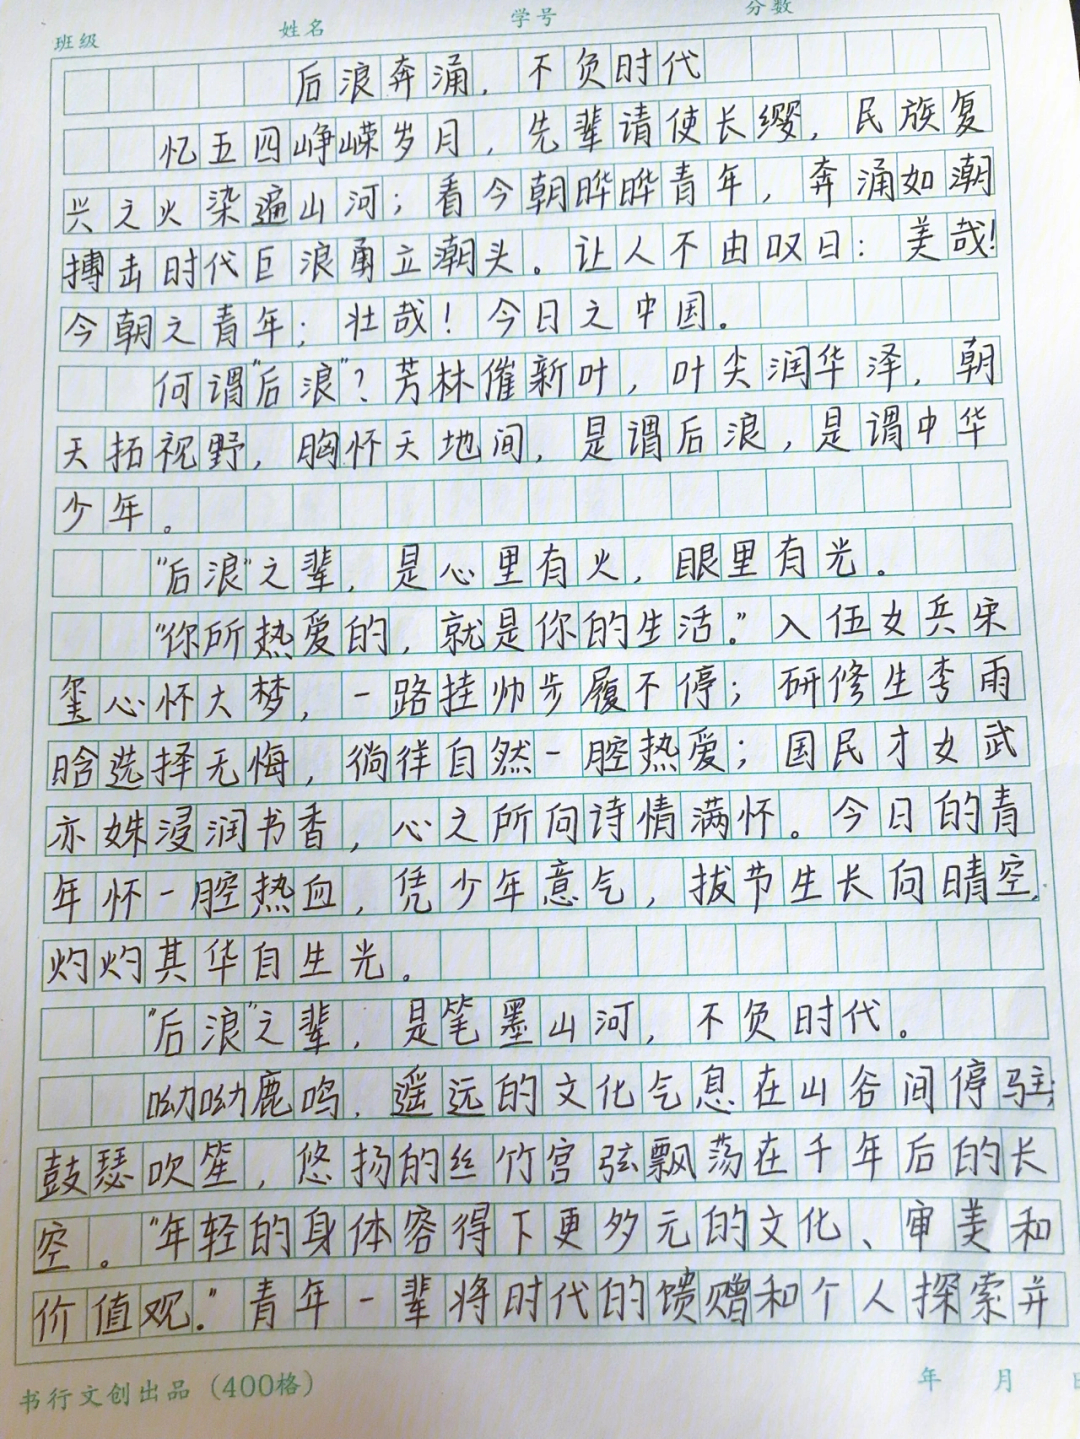 班级 姓名 学号 分数
后浪奔涌，不负时代
忆五四峥嵘岁月，先辈请使长缨，民族复
兴之火染遍山河；看今朝晔晔青年，奔涌如潮
搏击时代巨浪勇立潮头。让人不由叹曰：美哉！
今朝之青年；壮哉！今日之中国。
何谓“后浪”？芳林催新叶，叶尖润华泽，朝
天拓视野，胸怀天地间，是谓后浪，是谓中华
少年。
“后浪”之辈，是心里有火，眼里有光。
“你所热爱的，就是你的生活。”入伍女兵宋
玺心怀大梦，一路挂帅步履不停；研修生李雨
晗选择无悔，徜徉自然一腔热爱；国民才女武
亦姝浸润书香，心之所向诗情满怀。今日的青
年怀一腔热血，凭少年意气，拔节生长向晴空，
灼灼其华自生光。
“后浪”之辈，是笔墨山河，不负时代。
呦呦鹿鸣，遥远的文化气息在山谷间停驻；
鼓瑟吹笙，悠扬的丝竹宫弦飘荡在千年后的长
空。“年轻的身体容得下更多元的文化、审美和
价值观。”青年一辈将时代的馈赠和个人探索并
书行文创出品（400格） 年 月 日